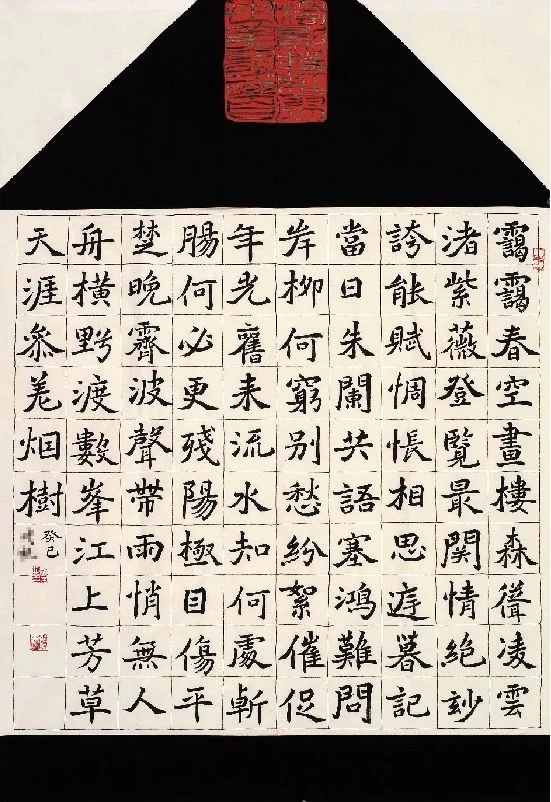 靄靄春空畫樓森聳凌雲
渚紫薇登覽最關情絶玅
誇能賦惆悵相思遲暮記
當日朱闌共語塞鴻難問
岸柳何窮別愁紛絮催促
年光舊來流水知何處斬
腸何必更殘陽極目傷平
楚晚霽波聲帶雨悄無人
舟橫野渡數峯江上芳草
天涯參差烟樹
癸巳